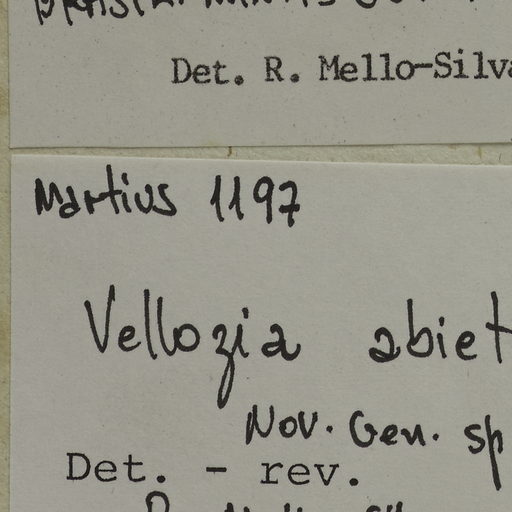 Det. R. Mello-Silva
Martius 1197
Vellozia abiet
Nov. Gen. sp
Det. - rev.